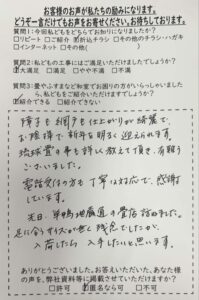 お客様のお声が私たちの励みになります。
どうぞ一言だけでもお声をお寄せください。お待ちしております。
質問1：今回私どもをどちらでお知りになりましたか？
□リピート □ご紹介 ☑折込チラシ □その他のチラシ・ハガキ
□インターネット □その他(　　　)
質問2：私どもの工事にはご満足いただけましたでしょうか？
☑大満足 □満足 □やや不満 □不満
質問3：畳やふすまなど和室でお困りの方がいらっしゃいましたら、私どもをご紹介いただけますでしょうか？
☑紹介できる □紹介できない
障子も網戸も仕上がりが綺麗で
お陰様で新年を明るく迎えられます。
琉球畳の事も詳しく教えて頂き、有難う
ございました。
電話受付の方も丁寧な対応で、感謝
しています。
末日、巣鴨地蔵通の畳店訪ねました。
足に合うサイズが無く残念でしたが、
入荷したら入手したいと思います。
ありがとうございました。お答えいただいた、あなた様
の声を、弊社資料等に掲載させていただけますか？
□許可 ☑匿名なら可 □不可